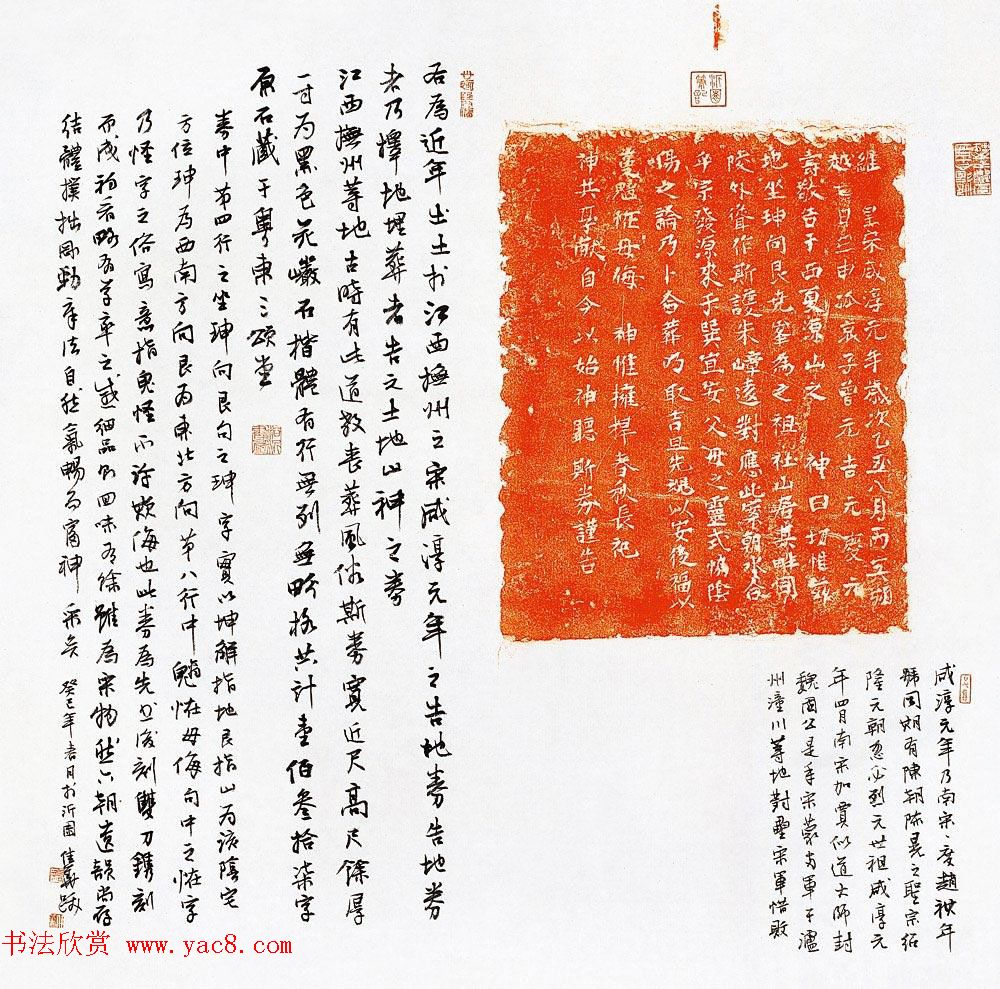 維 皇宋咸淳元年歲次乙丑八月丙五朔
越 日 申孤哀子曾元吉元慶元
壽敢告于西夏源山之 神曰切惟
地坐珅向艮先 為之祖社山居其
陵外聳作斯護朱嶂遠對應此案朝水合
平宗發源來乎巽宜安父母之靈式 陰
陽之論乃卜合葬乃取吉旦先魂以安後福以
蔓魈恠毋侮 神惟擁捍春秋長祀
神共享獻自今以始神聽斯券謹告
咸淳元年乃南宋度 趙禥年
號同 有陳朝陳 之 宗紹
隆元朝忽必烈元世祖咸淳元
年四月南宋加賈似道太師封
魏國公是年宋蒙 軍于瀘
州潼川等地對壘宋軍惜敗
右為近年出土於江西撫州之宋咸淳元年之告地券告地券
者乃擇地埋葬者告之土地山神之券
江西撫州等地古時有此道教喪葬風俗斯券寬近尺高尺餘厚
一寸為黑色 巖石楷體有行無列無界格共計壹佰叁拾柒字
原石藏于粵東三頌堂
券中第四行之坐珅向艮句之珅字實以坤解指地艮指山為該陰宅
方位珅為西南方向艮為東北方向第八行中魈恠毋侮句中之恠字
乃怪字之俗寫意指鬼怪不許欺侮也此券為先書後刻雙刀鐫刻
而成初看略有草率之感細品則回味有餘雖為宋物然六朝遺韻尚存
結體樸拙剛勁章法自然氣暢而富神采矣
癸巳年春月於沂園佳 跋
书法欣赏 www.yac8.com